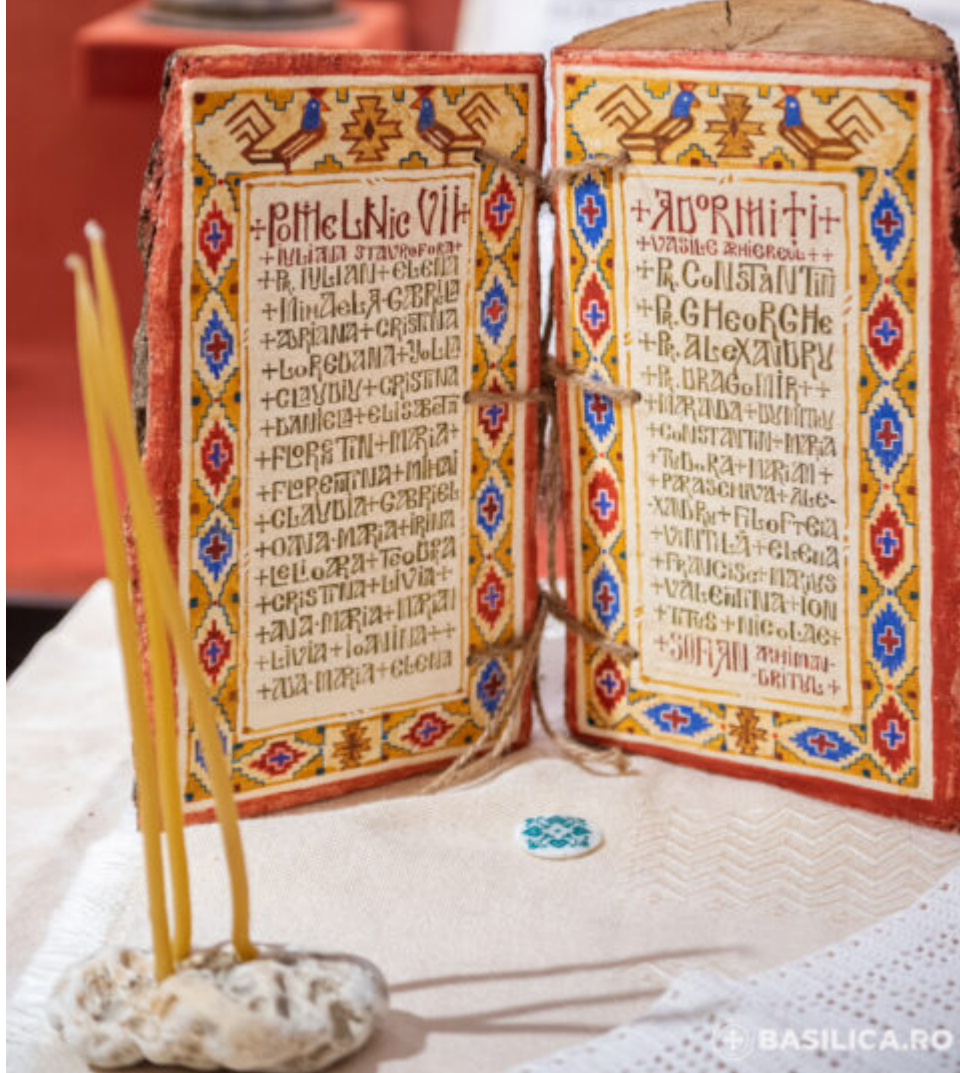 +POMELNIC VII+
+IULIANA STAVROFORA+
+PR. IULIAN+ELENA
+MIHAELA-GABRIELA
+ADRIANA+CRISTINA
+LOREDANA+IULIA
+CLAUDIU+CRISTINA
+DANIELA+ELISABETA
+FLORETIN+MARIA+
+FLORENTINA+MIHAI
+CLAUDIA+GABRIEL
+OANA-MARIA+IRINA
+LELIOARA+TEODORA
+CRISTINA+LIVIA+
+ANA-MARIA+MARIAN
+LIVIA+IOANINA++
+ANA-MARIA+ELENA
+ADORMIȚI+
+VASILE ARHIEREUL++
+PR. CONSTANTIN
+PR. GHEORGHE
+PR. ALEXANDRU
+PR. DRAGOMIR++
+MARANDA+DUMITRU
+CONSTANTIN+MARIA
+TUDORA+MARIAN+
+PARASCHIVA+ALE-
XANDRU+FILOFTEIA
+VINTILĂ+ELENA
+FRANCISC+MARIUS
+VALENTINA+ION
+TITUS+NICOLAE+
+SOFIAN ARHIMAN-
-DRITUL+
BASILICA.RO